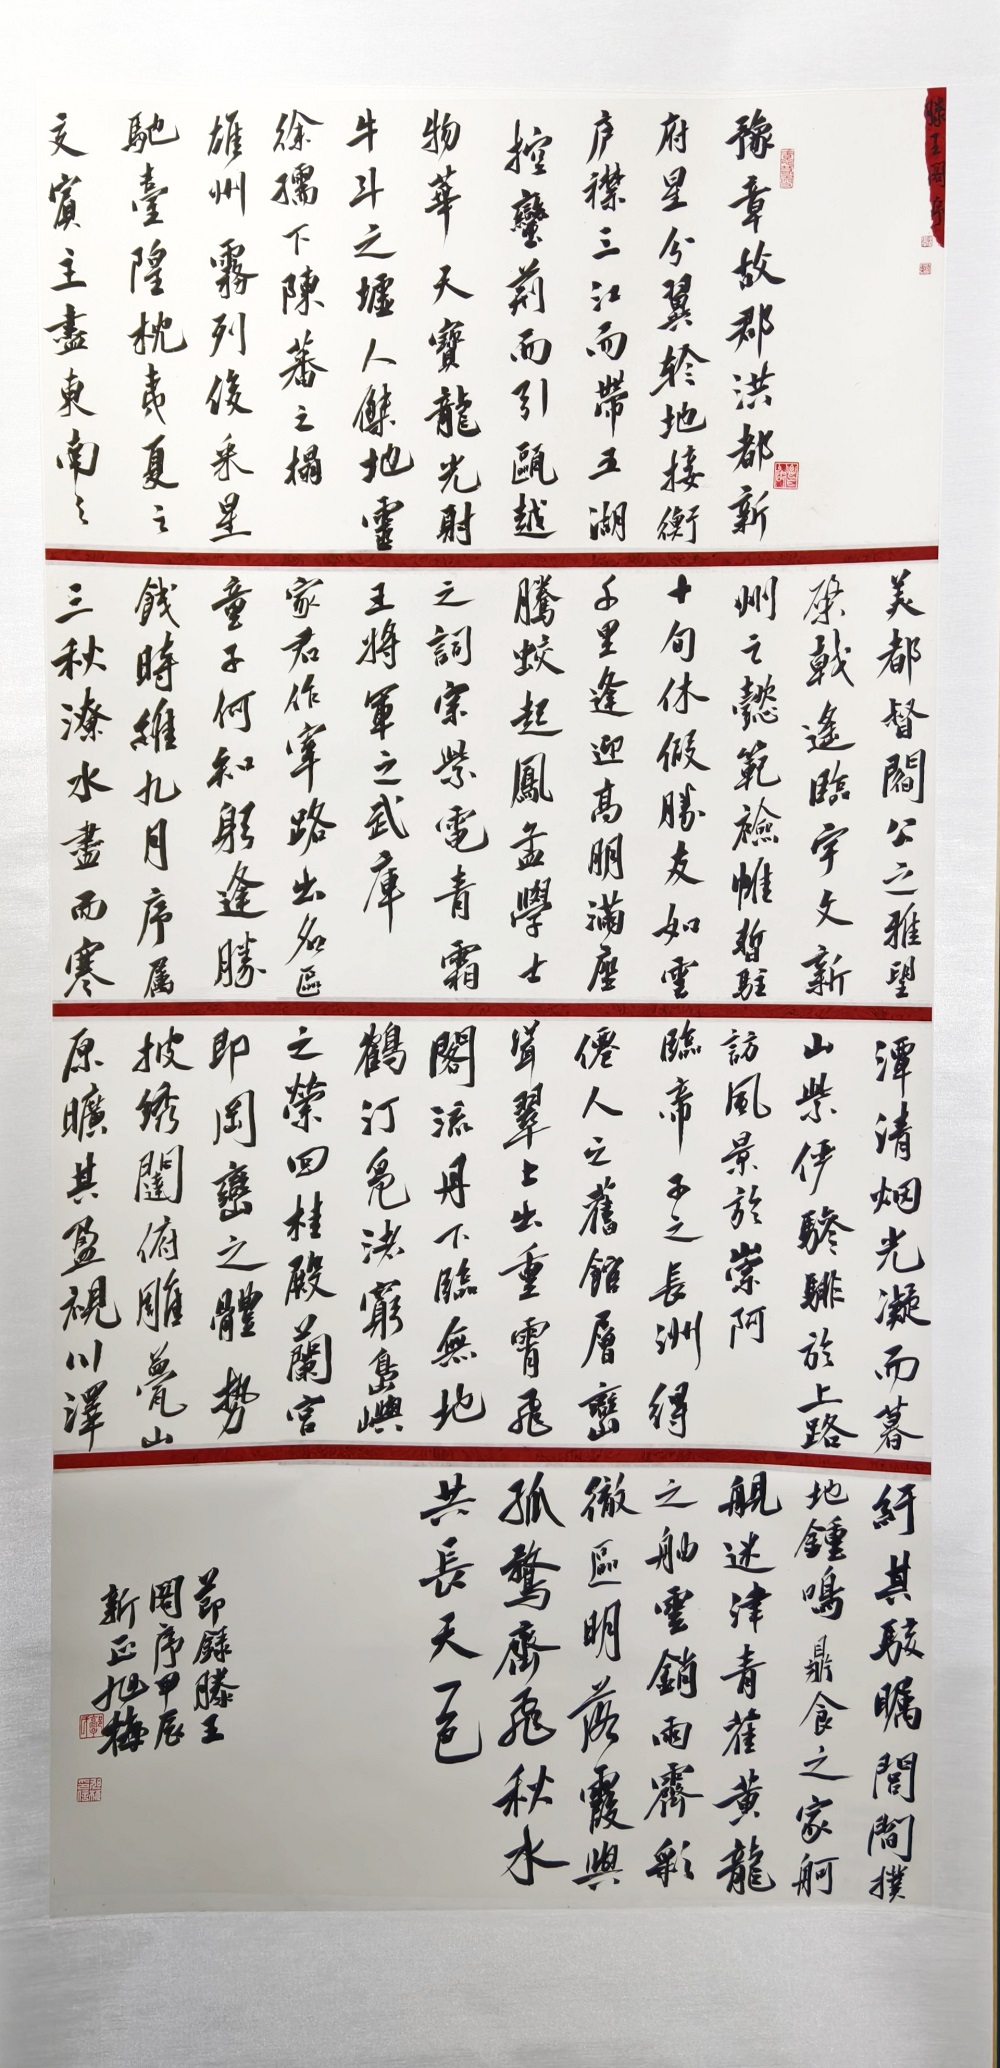 滕王阁序
豫章故郡洪都新
府星分翼轸地接衡
庐襟三江而带五湖
控蛮荊而引甌越
物華天寶龍光射
牛斗之墟人傑地靈
徐孺下陳蕃之榻
雄州霧列俊采星
馳臺隍枕夷夏之
交賓主盡東南之
美都督閻公之雅望
棨戟遙臨宇文新
州之懿範襜帷暫駐
十旬休假勝友如雲
千里逢迎高朋滿座
騰蛟起鳳孟學士
之詞宗紫電青霜
王將軍之武庫
家君作宰路出名區
童子何知躬逢勝
餞時維九月序属
三秋潦水盡而寒
潭清烟光凝而暮
山紫伊驂騑於上路
訪風景於崇阿
臨帝子之長洲得
僊人之舊館層巒
聳翠上出重霄飛
閣流丹下臨無地
鶴汀凫渚窮島嶼
之縈回桂殿蘭宫
即岡巒之體勢
披绣闥俯雕甍山
原曠其盈視川澤
紆其駭矚閭閻撲
地鍾鳴鼎食之家舸
舰迷津青雀黄龍
之舳雲銷雨霽彩
徹區明落霞與
孤鶩齊飛秋水
共長天一色
節錄滕王
阁序甲辰
新正旭梅